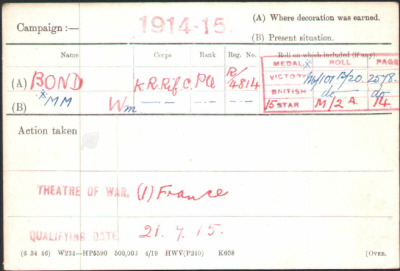 Campaign :— 1914-15 (A) Where decoration was earned.
(B) Present situation.
Name Corps Rank Reg. No. Roll on which included (if any).
MEDAL ROLL PAGE
(A) BOND K. R. Rif. C. Pte R/4814 VICTORY 2578.
(B) x MM Wm — — — — BRITISH do do
15 STAR M/2 A. 14
Action taken
THEATRE OF WAR. (1) France
QUALIFYING DATE 21. 7. 15.
(6 34 46) W234—HP5590 500,000 4/19 HWV(P240) K608 [OVER.